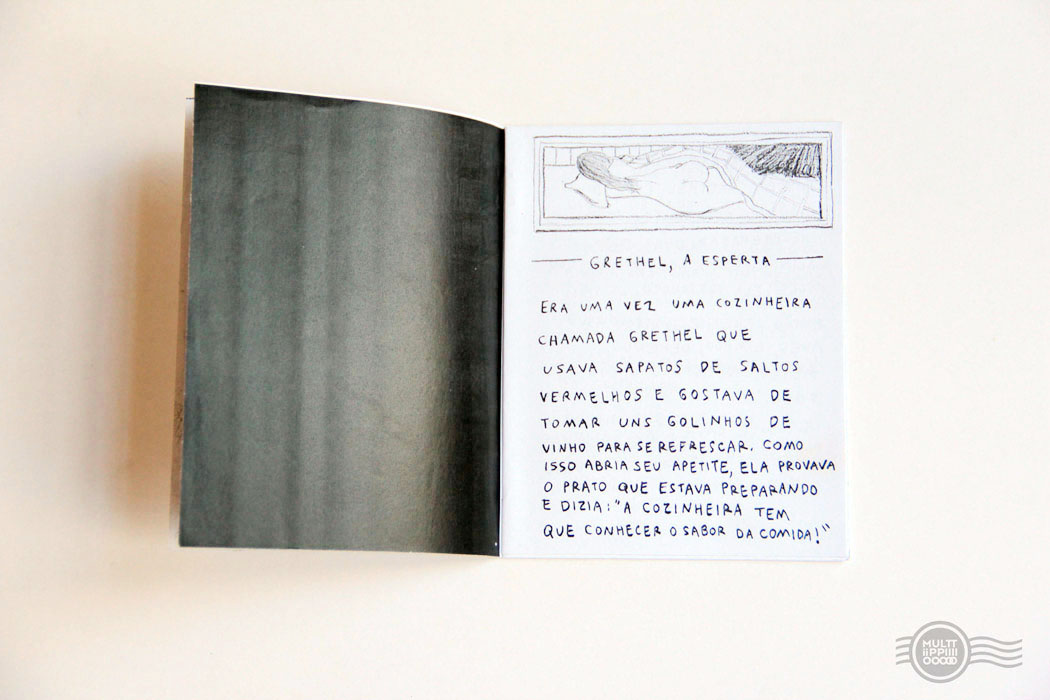 GRETHEL, A ESPERTA
ERA UMA VEZ UMA COZINHEIRA
CHAMADA GRETHEL QUE
USAVA SAPATOS DE SALTOS
VERMELHOS E GOSTAVA DE
TOMAR UNS GOLINHOS DE
VINHO PARA SE REFRESCAR. COMO
ISSO ABRIA SEU APETITE, ELA PROVAVA
O PRATO QUE ESTAVA PREPARANDO
E DIZIA: "A COZINHEIRA TEM
QUE CONHECER O SABOR DA COMIDA!"